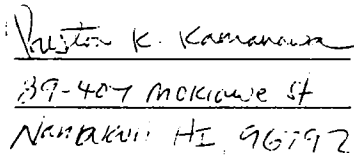 Preston K. Kamanawa
89-407 Mokiawe St
Nanakuli HI 96792